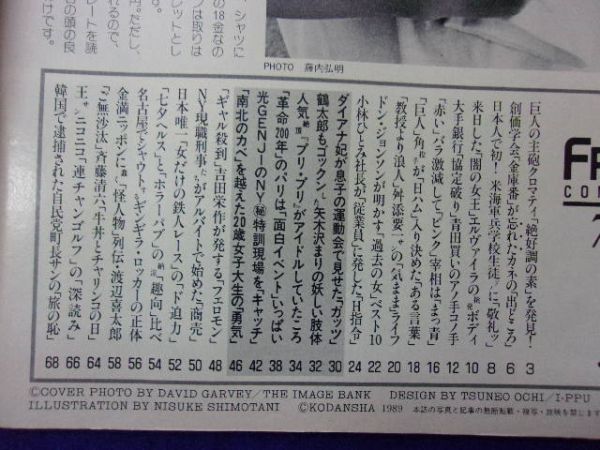 シャツに
の18金なの
円。ただし、
れるので、
レットとし
プは取りは
レートを読
もの頭の良
けです。
PHOTO 藤内弘明
FR
CON
巨人の主砲クロマティ「絶好調の素」を発見! 3
創価学会「金庫番」が忘れたカネの「出どころ」 6
日本人で初!米海軍兵学校生徒に敬礼ッ 8
来日した「闇の女王」エルヴァイラのボディ 10
大手銀行「協定破り」青田買いのアノ手コノ手 12
「赤い」バラ激減して「ピンク」宰相は「まっ青」 16
「巨人」角が「日ハム」入りを決めた「ある言葉」 18
「教授より浪人」舛添要一サンの「気まま」ライフ 20
ドン・ジョンソンが明かす「過去の女」ベスト10 22
小林ひとみ社長が「従業員」に発した「H指令」 24
ダイアナ妃が息子の運動会で見せた「ガッツ」 30
鶴太郎もゴックン矢木沢まりの妖しい肢体 32
人気「プリ・プリ」がアイドルしていたころ 34
「革命200年」のパリは「面白イベント」いっぱい 38
光GENJIのNY㊙特訓現場を、キャッチ 42
「南北のカベ」を越えた20歳女子大生の「勇気」 46
「ギャル殺到」吉田栄作が発する「フェロモン」 48
NY現職刑事がアルバイトで始めた「商売」 50
日本唯一「女だけの鉄人レース」の「ド迫力」 52
「七夕ヘルス」と「ホラーパブ」の「趣向」比べ 54
名古屋でシャウト「ギンギラ・ロッカーの正体 56
金満ニッポンに「怪人物」列伝・渡辺喜太郎 58
「ご無沙汰」斉藤清六「牛丼とチャリンコの日」 64
王サン「ニコニコ「連チャンゴルフ」の「深読み」 66
韓国で逮捕された自民党町長サンの「旅の恥」 68
©COVER PHOTO BY DAVID GARVEY/THE IMAGE BANK DESIGN BY TSUNEO OCHI/I-PPU
ILLUSTRATION BY NISUKE SHIMOTANI ©KODANSHA 1989 本誌の写真と記事の無断転載・複写・放映を禁じます